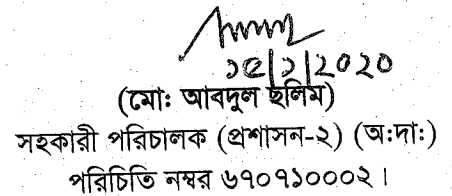 ১৫/১/2020
(মো: আবদুল ছলিম)
সহকারী পরিচালক (প্রশাসন-২) (অ:দা:)
পরিচিতি নম্বর ৬৭০৭১০০০২।